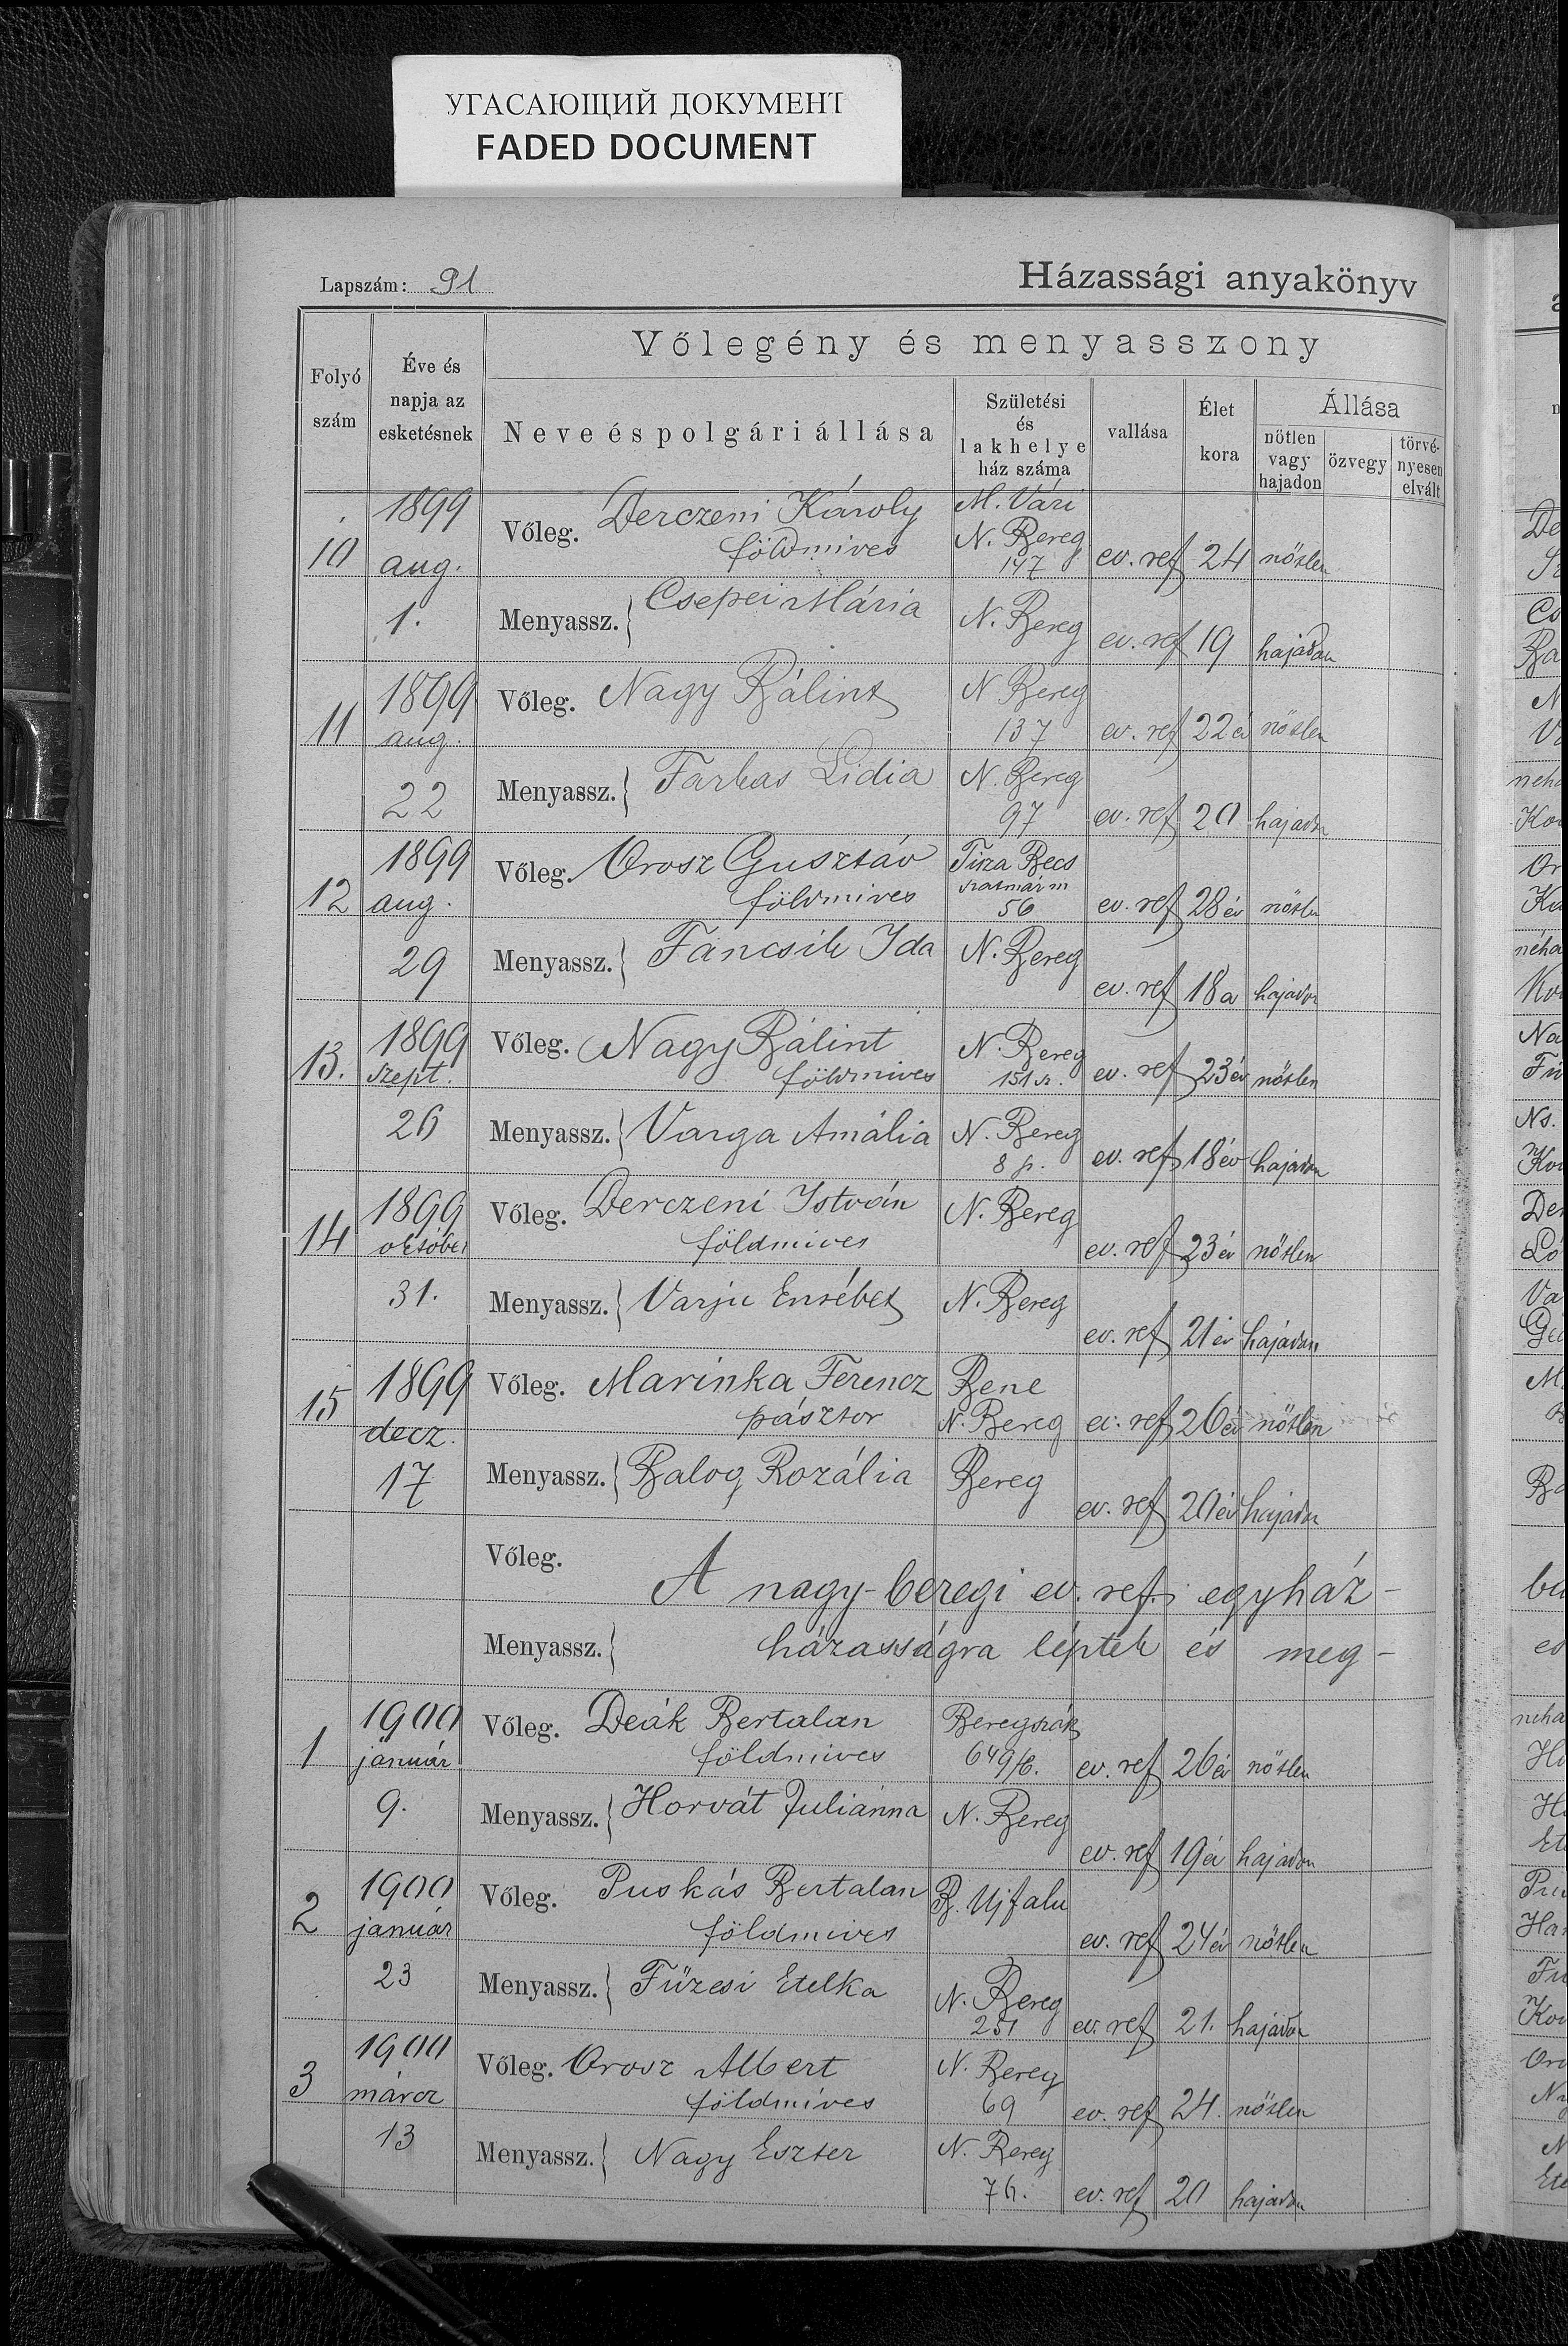 УГАСАЮЩИЙ ДОКУМЕНТ
FADED DOCUMENT
Lapszám: 91
Házassági anyakönyv
Folyó szám
Éve és napja az esketésnek
Vőlegény és menyasszony
Neve és polgári állása
Születési és lakhelye ház száma
vallása
Élet kora
Állása
nötlen vagy hajadon
özvegy
törvényesen elvált
10 1899 aug. 1.
Vőleg. Derczeni Károly földmives M. Vári N. Bereg 147 ev. ref 24 nőtlen
Menyassz. Csepei Mária N. Bereg ev. ref 19 hajadon
11 1899 aug. 22
Vőleg. Nagy Bálint N Bereg 137 ev. ref 22 év nőtlen
Menyassz. Farkas Lidia N. Bereg 97 ev. ref 20 hajadon
12 1899 aug. 29
Vőleg. Orosz Gusztáv földmives Tisza Becs Szatmár m 56 ev. ref 28 év nőtlen
Menyassz. Fancsik Ida N. Bereg ev. ref 18 hajadon
13. 1899 szept. 26
Vőleg. Nagy Bálint földmives N. Bereg 151 sz. ev. ref 23 év nőtlen
Menyassz. Varga Amália N. Bereg 8 ev. ref 18 év hajadon
14 1899 október 31.
Vőleg. Derczeni István földmives N. Bereg ev. ref 23 év nőtlen
Menyassz. Varju Erzsébet N. Bereg ev. ref 21 év hajadon
15 1899 decz. 17
Vőleg. Marinka Ferencz pásztor Bene N. Bereg ev. ref 26 év nőtlen
Menyassz. Balog Rozália Bereg ev. ref 20 év hajadon
Vőleg. A nagy-beregi ev. ref. egyház-
Menyassz. házasságra léptek és meg-
1 1900 január 9.
Vőleg. Deák Bertalan földmives Beregszász 649/6. ev. ref 26 év nőtlen
Menyassz. Horvát Juliánna N. Bereg ev. ref 19 év hajadon
2 1900 január 23
Vőleg. Puskás Bertalan földmives B. Ujfalu ev. ref 24 év nőtlen
Menyassz. Füzesi Etelka N. Bereg 251 ev. ref 21. hajadon
3 1900 márcz 13
Vőleg. Orosz Albert földmíves N. Bereg 69 ev. ref 24. nőtlen
Menyassz. Nagy Eszter N. Bereg 76. ev. ref 20 hajadon